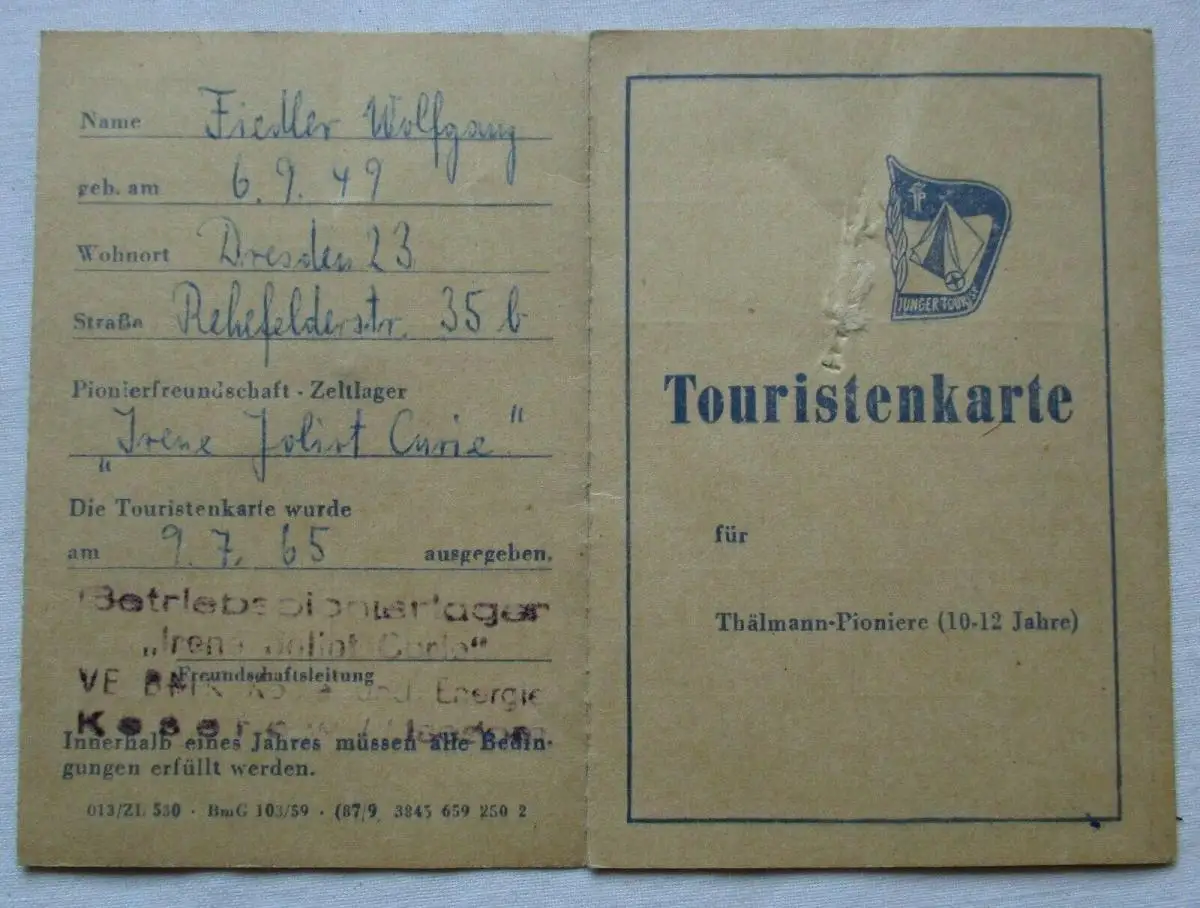 Name Fiedler Wolfgang
geb. am 6. 9. 49
Wohnort Dresden 23
Straße Rehefelderstr. 35 b
Pionierfreundschaft - Zeltlager
„Irene Joliot Curie"
Die Touristenkarte wurde
am 9. 7. 65 ausgegeben.
Betriebspionierlager
„Irene Joliot Curie"
Freundschaftsleitung
VE und Energie
Innerhalb eines Jahres müssen alle Bedin-
gungen erfüllt werden.
013/ZL 530 · BmG 103/59 · (87/9) 3845 659 250 2
JUNGER TOURIST
Touristenkarte
für
Thälmann-Pioniere (10-12 Jahre)